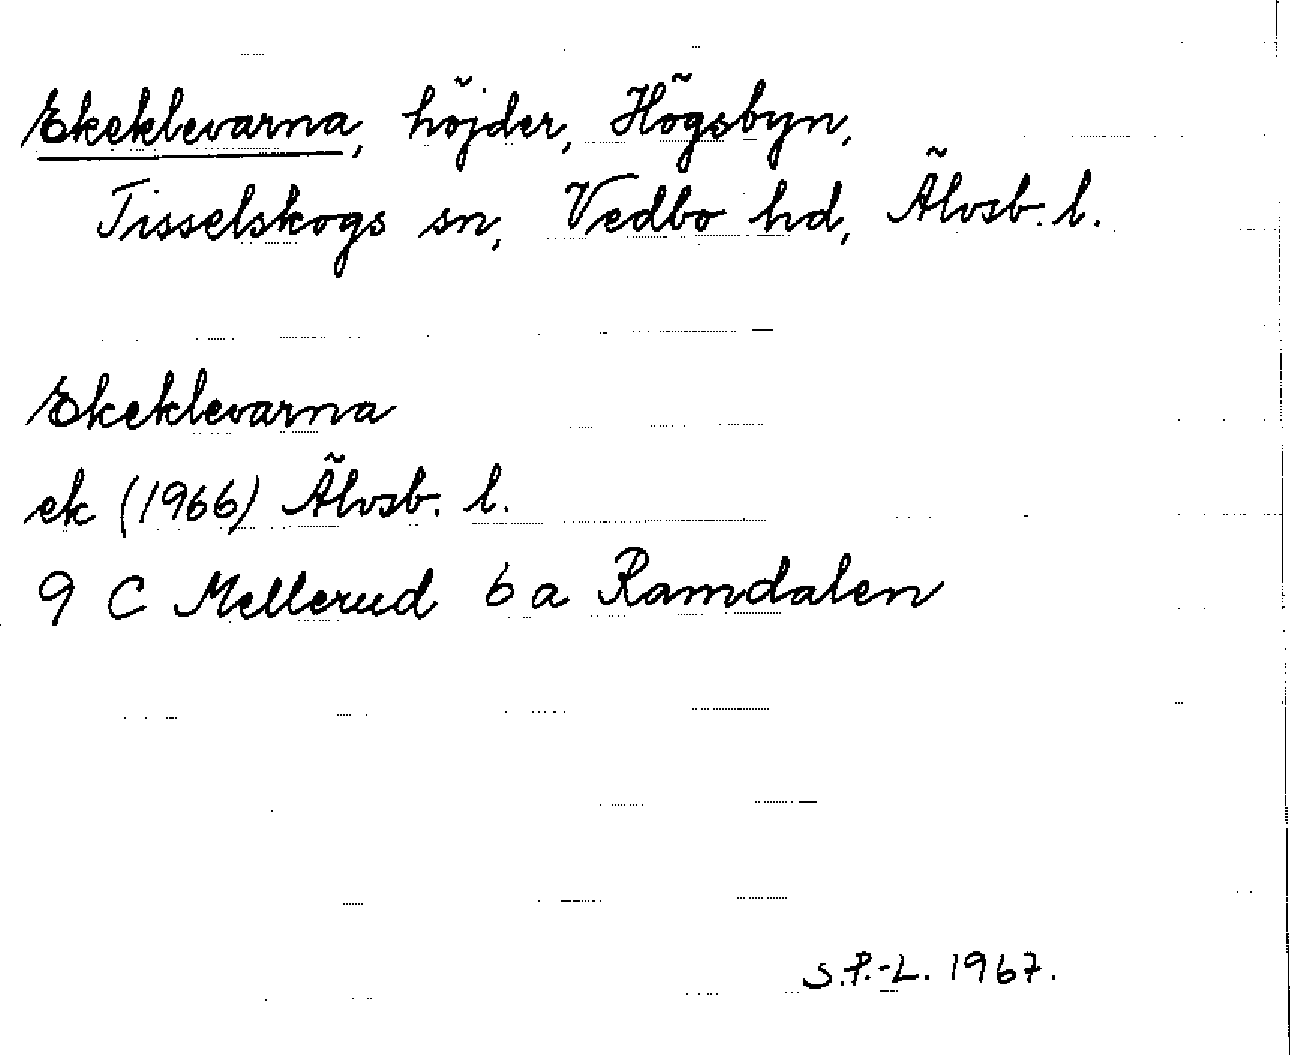 Ekeklevarna, höjder, Högsbyn,
Tisselskogs sn, Vedbo hd, Älvsb. l.
Ekeklevarna
ek (1966) Älvsb. l.
9 C Mellerud 6 a Ramdalen
S.P.-L. 1967.